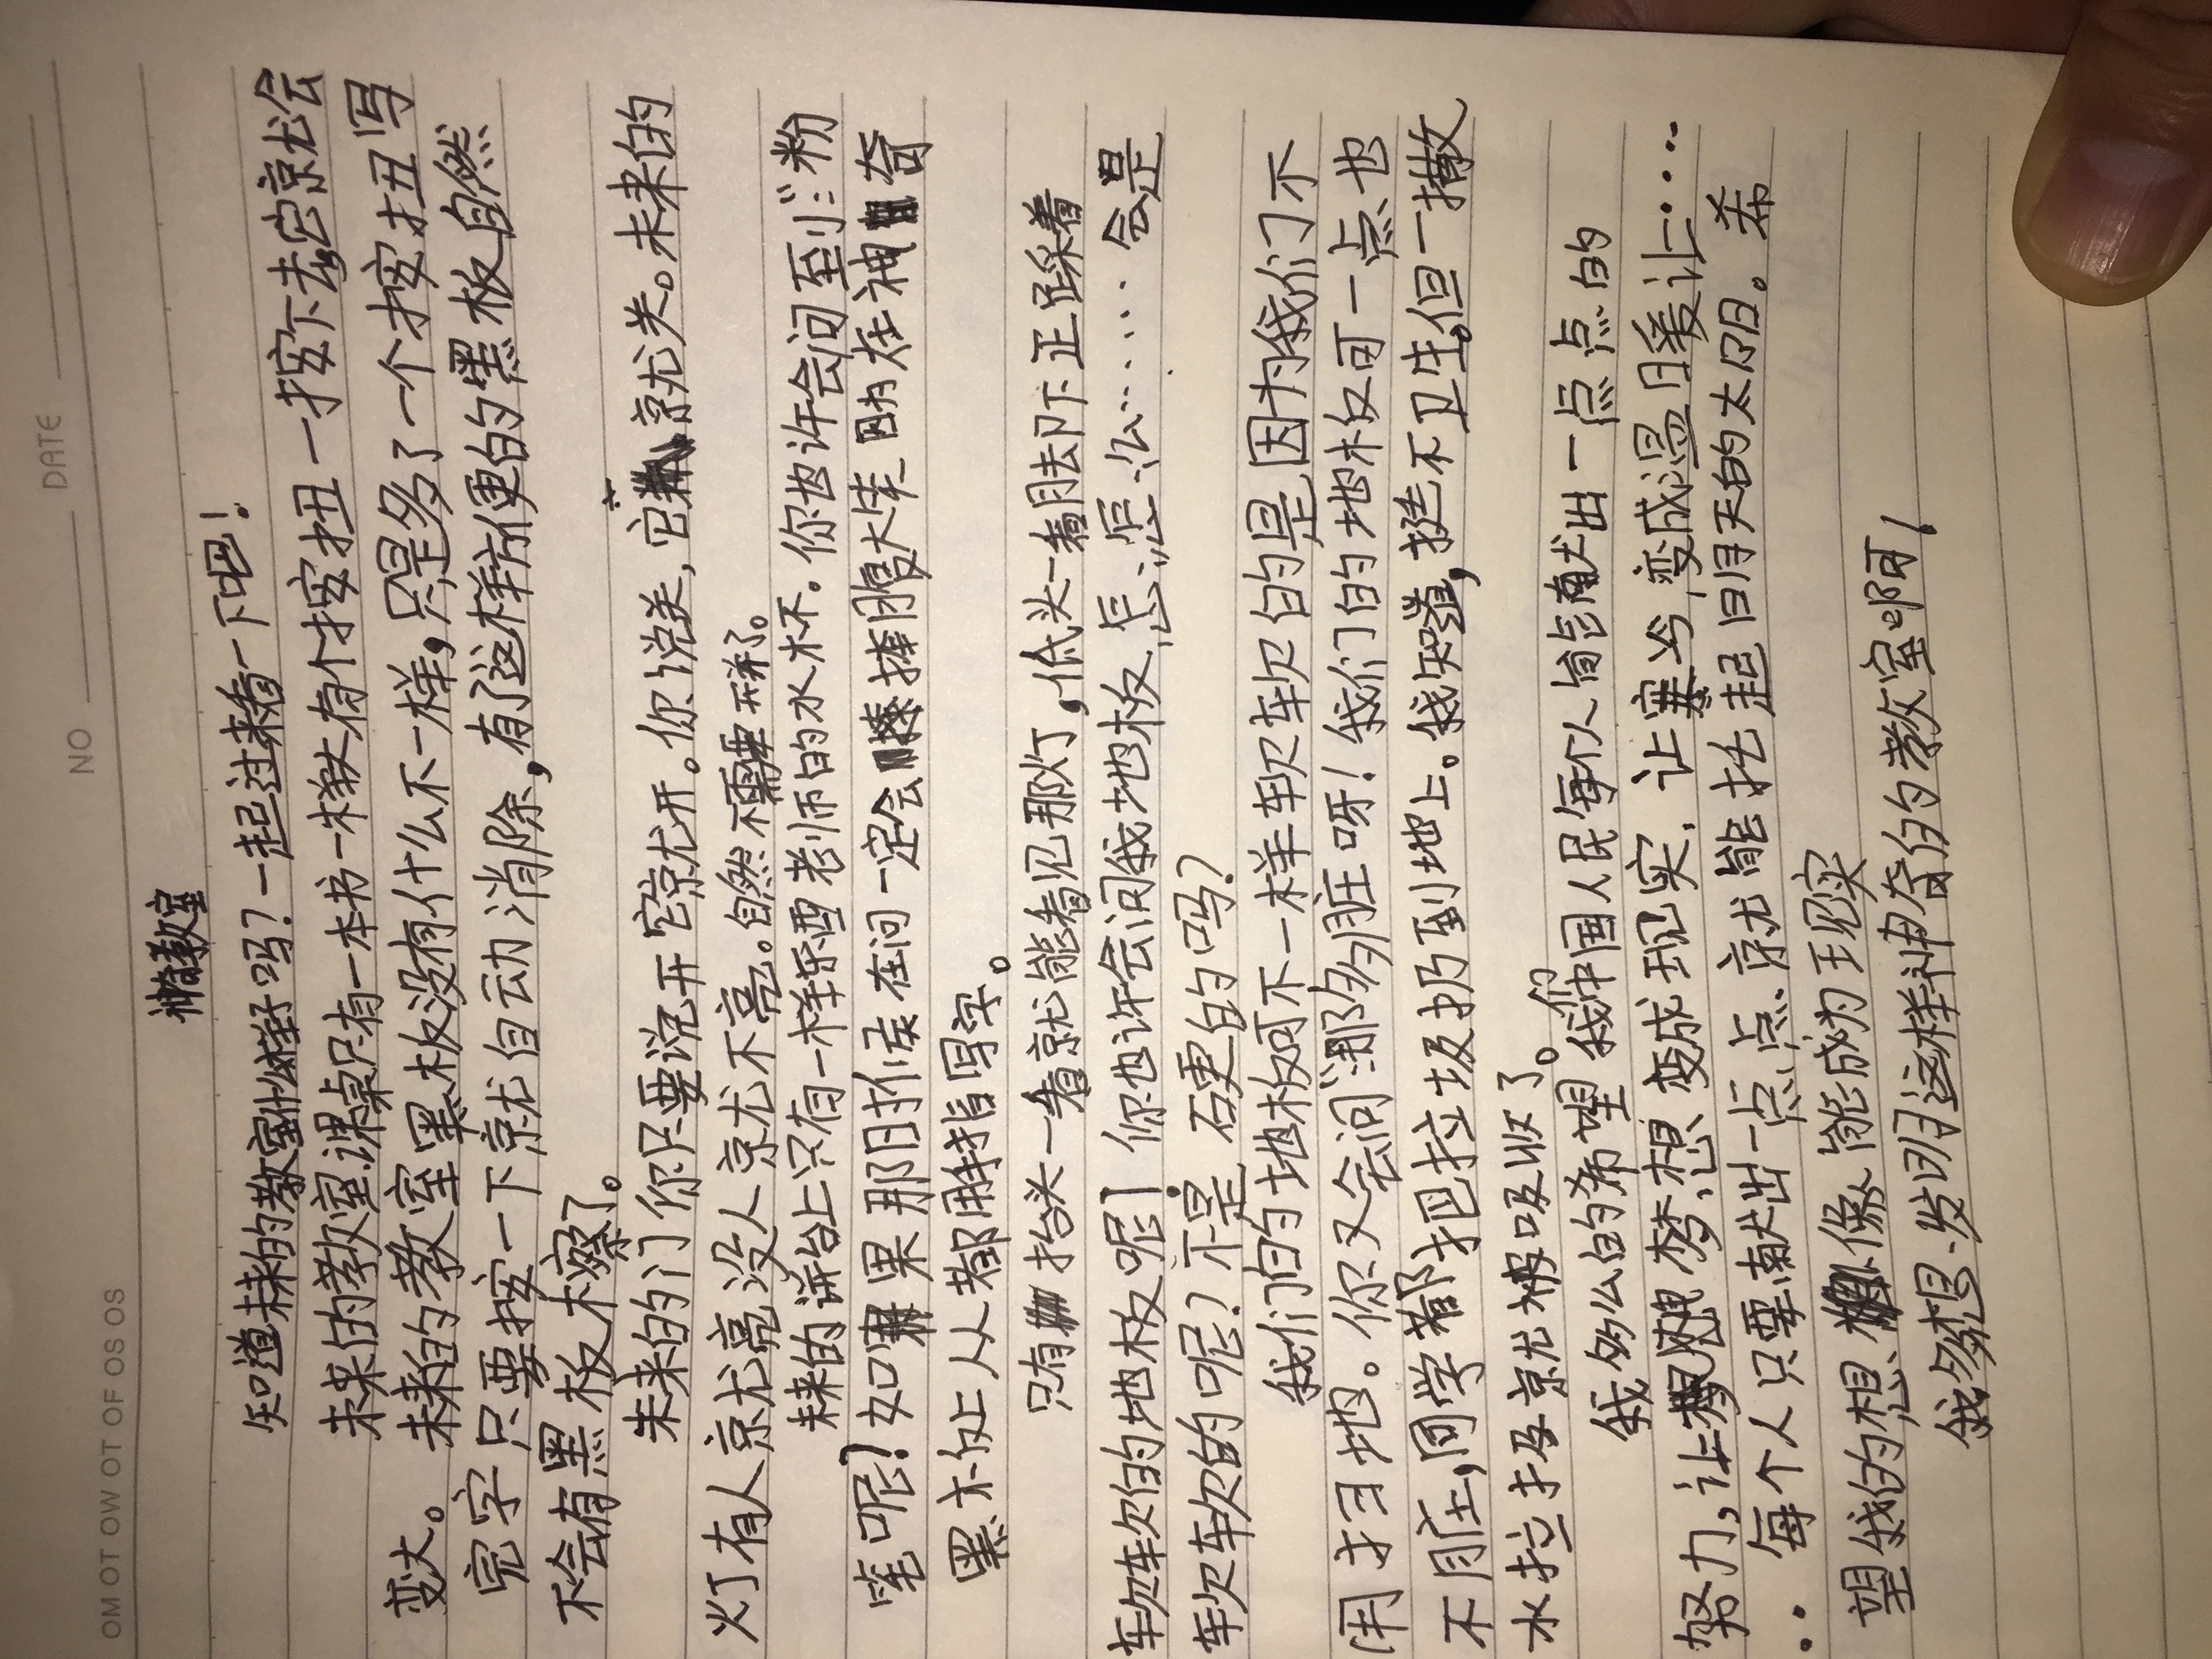 NO
DATE
OM OT OW OT OF OS OS
神奇教室
知道未来的教室什么样子吗？一起过来看一下吧！
未来的教室课桌只有一本书一样大有个按扭一按下去它就会
变大。未来的教室黑板没有什么不一样，只是多了一个按扭写
完字只要按一下就自动消除，有了这样方便的黑板自然
不会有黑板擦了。
朱来的门你只要说开它就开。你说关，它就关。未来的
灯有人就亮没人就不亮。自然不需要开关了。
未来的讲台上只有一样东西老师的水杯.你也许会问到：粉
笔呢？如果那时侯在问一定会捧腹大笑因为在神奇
黑板上人都用手指写字。
只有抬头一看就能看见那灯，低头一看脚下正踩着
软软的地板呢！你也许会问我地板、怎、怎、么……会是
软软的呢？不是硬的吗？
我们的地板可不一样软软的是因为我们不
用扫地。你又会问“那多脏呀！我们的地板可一点也
不脏，同学都把垃圾扔到地上。我知道，挺不卫生。但一撒
水垃圾就被吸收了。
我多么的希望我们中国人民每个人能献出一点点的
努力，让梦想变成现实，让寒冷变成温暖让…
…每个人只要献出一点点就能托起明天的太阳。希
望我的想像能成为现实
我多想发明这样神奇的教室啊！